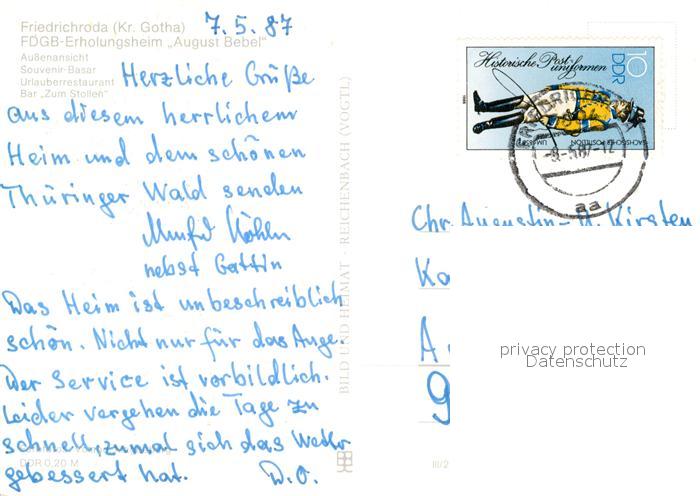 Friedrichroda (Kr. Gotha)
7.5.87
FDGB-Erholungsheim „August Bebel"
Außenansicht
Souvenir-Basar
Urlauberrestaurant
Bar „Zum Stollen"
Herzliche Grüße
aus diesem herrlichem
Heim und dem schönen
Thüringer Wald senden
nebst Gattin
Das Heim ist unbeschreiblich
schön. Nicht nur für das Auge.
Der Service ist vorbildlich.
Leider vergehen die Tage zu
schnell, zumal sich das Wetter
gebessert hat. D.O.
DDR 0,20 M
BILD UND HEIMAT · REICHENBACH (VOGTL)
III/2
Historische Post-
uniformen
10
DDR
SÄCHSISCHER POSTILLION
UM 1850
1986
-8.-5.87-12
aa
Chr. Augustin - A. Kirsten
Ka
A
9
privacy protection
Datenschutz